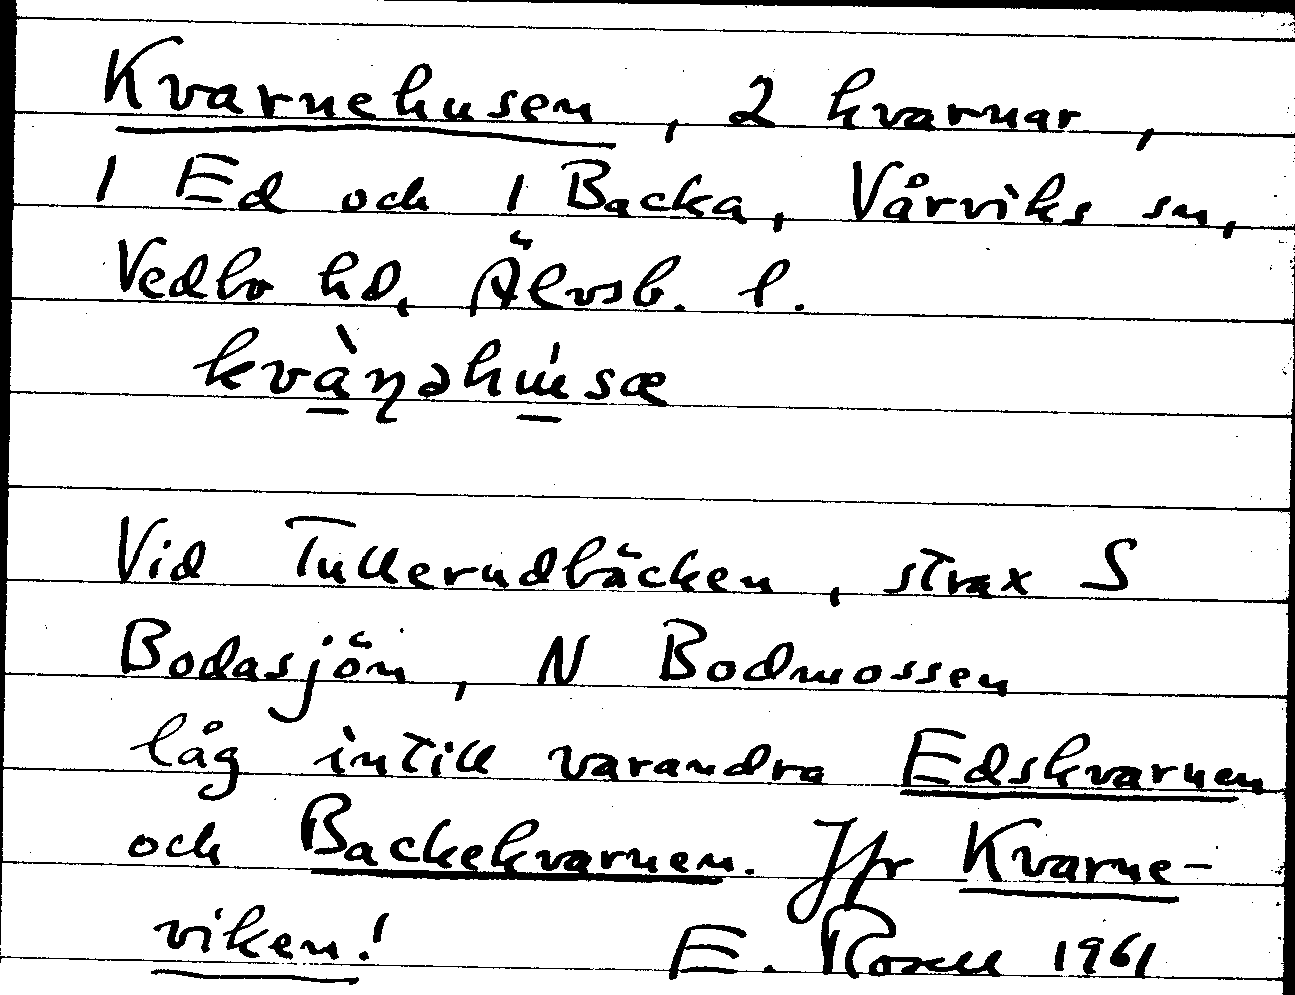 Kvarnehusen, 2 kvarnar,
1 Ed och 1 Backa, Vårviks sn,
Vedbo hd, Älvsb. l.
kvàɳəhu̍sæ
Vid Tullerudbäcken, strax S
Bodasjön, N Bodmossen
låg intill varandra Edskvarnen
och Backekvarnen. Jfr Kvarne-
viken! E. Rosell 1961